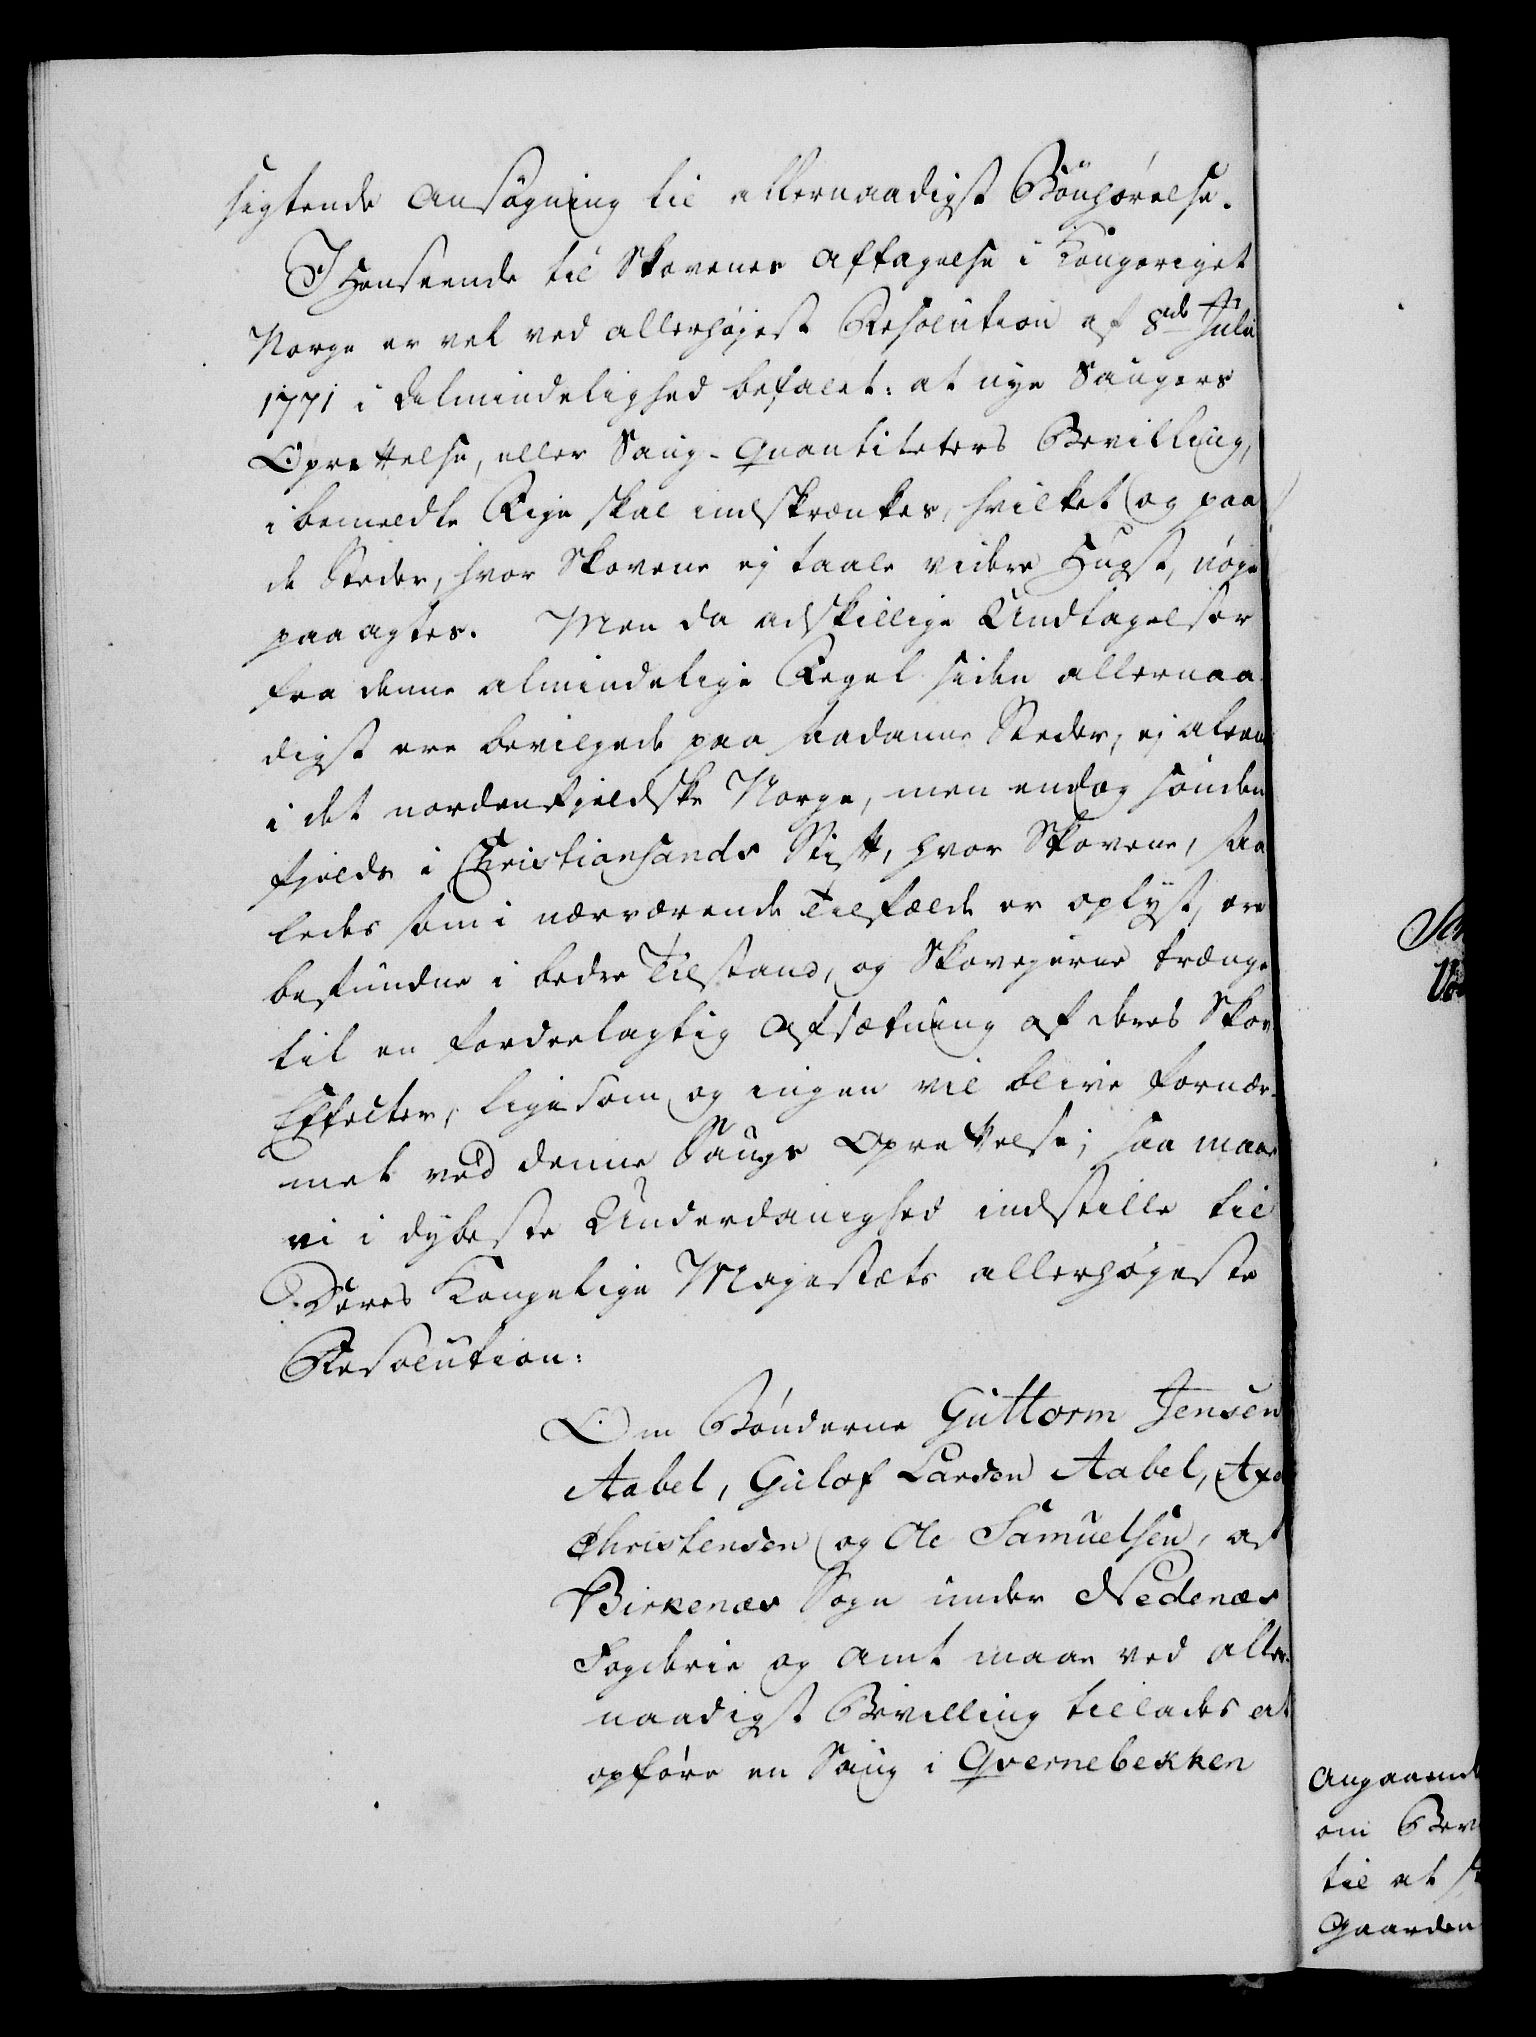 sigtende Ansögning til allernaadigst Bönhörelse.
I Henseende til Skovenes Aftagelse i Kongeriget
Norge er vel ved allerhöjest Resolution af 8de Julii
1771 i Almindelighed befalet: at nye Saugers
Oprettelse, eller Saug-Quantiteters Bevilling,
i bemeldte Rige skal indskrænkes, hvilket og paa
de Steder, hvor Skovene ej taale videre Hugst, nöje
paaagtes. Men da adskillige Undtagelser
fra denne almindelige Regel siden allernaa-
digst ere bevilgede paa saadanne Steder, ej alene
i det nordenfjeldske Norge, men endog sönden
fjelds i Christiansands Stift, hvor Skovene, saa
ledes som i nærværende Tilfælde er oplyst, ere
befundne i bedre Tilstand, og Skovejerne trænge
til en fordeelagtig Afsætning af deres Skov-
Effecter, ligesom og ingen vil blive fornær-
met ved denne Saugs Oprettelse; saa maae
vi i dybeste Underdanighed indstille til
Deres Kongelige Majestæts allerhöjeste
Resolution:
Om Bönderne Guttorm Jensen
Aabel, Gulof Larsen Aabel,
Christensen og Ole Samuelsen, af
Birkenæs Sogn under Nedenæs
Fogderie og Amt maae ved aller-
naadigst Bevilling tillades at
opföre en Saug i Qvernebekken
Angaaende
om
til at
Gaarden